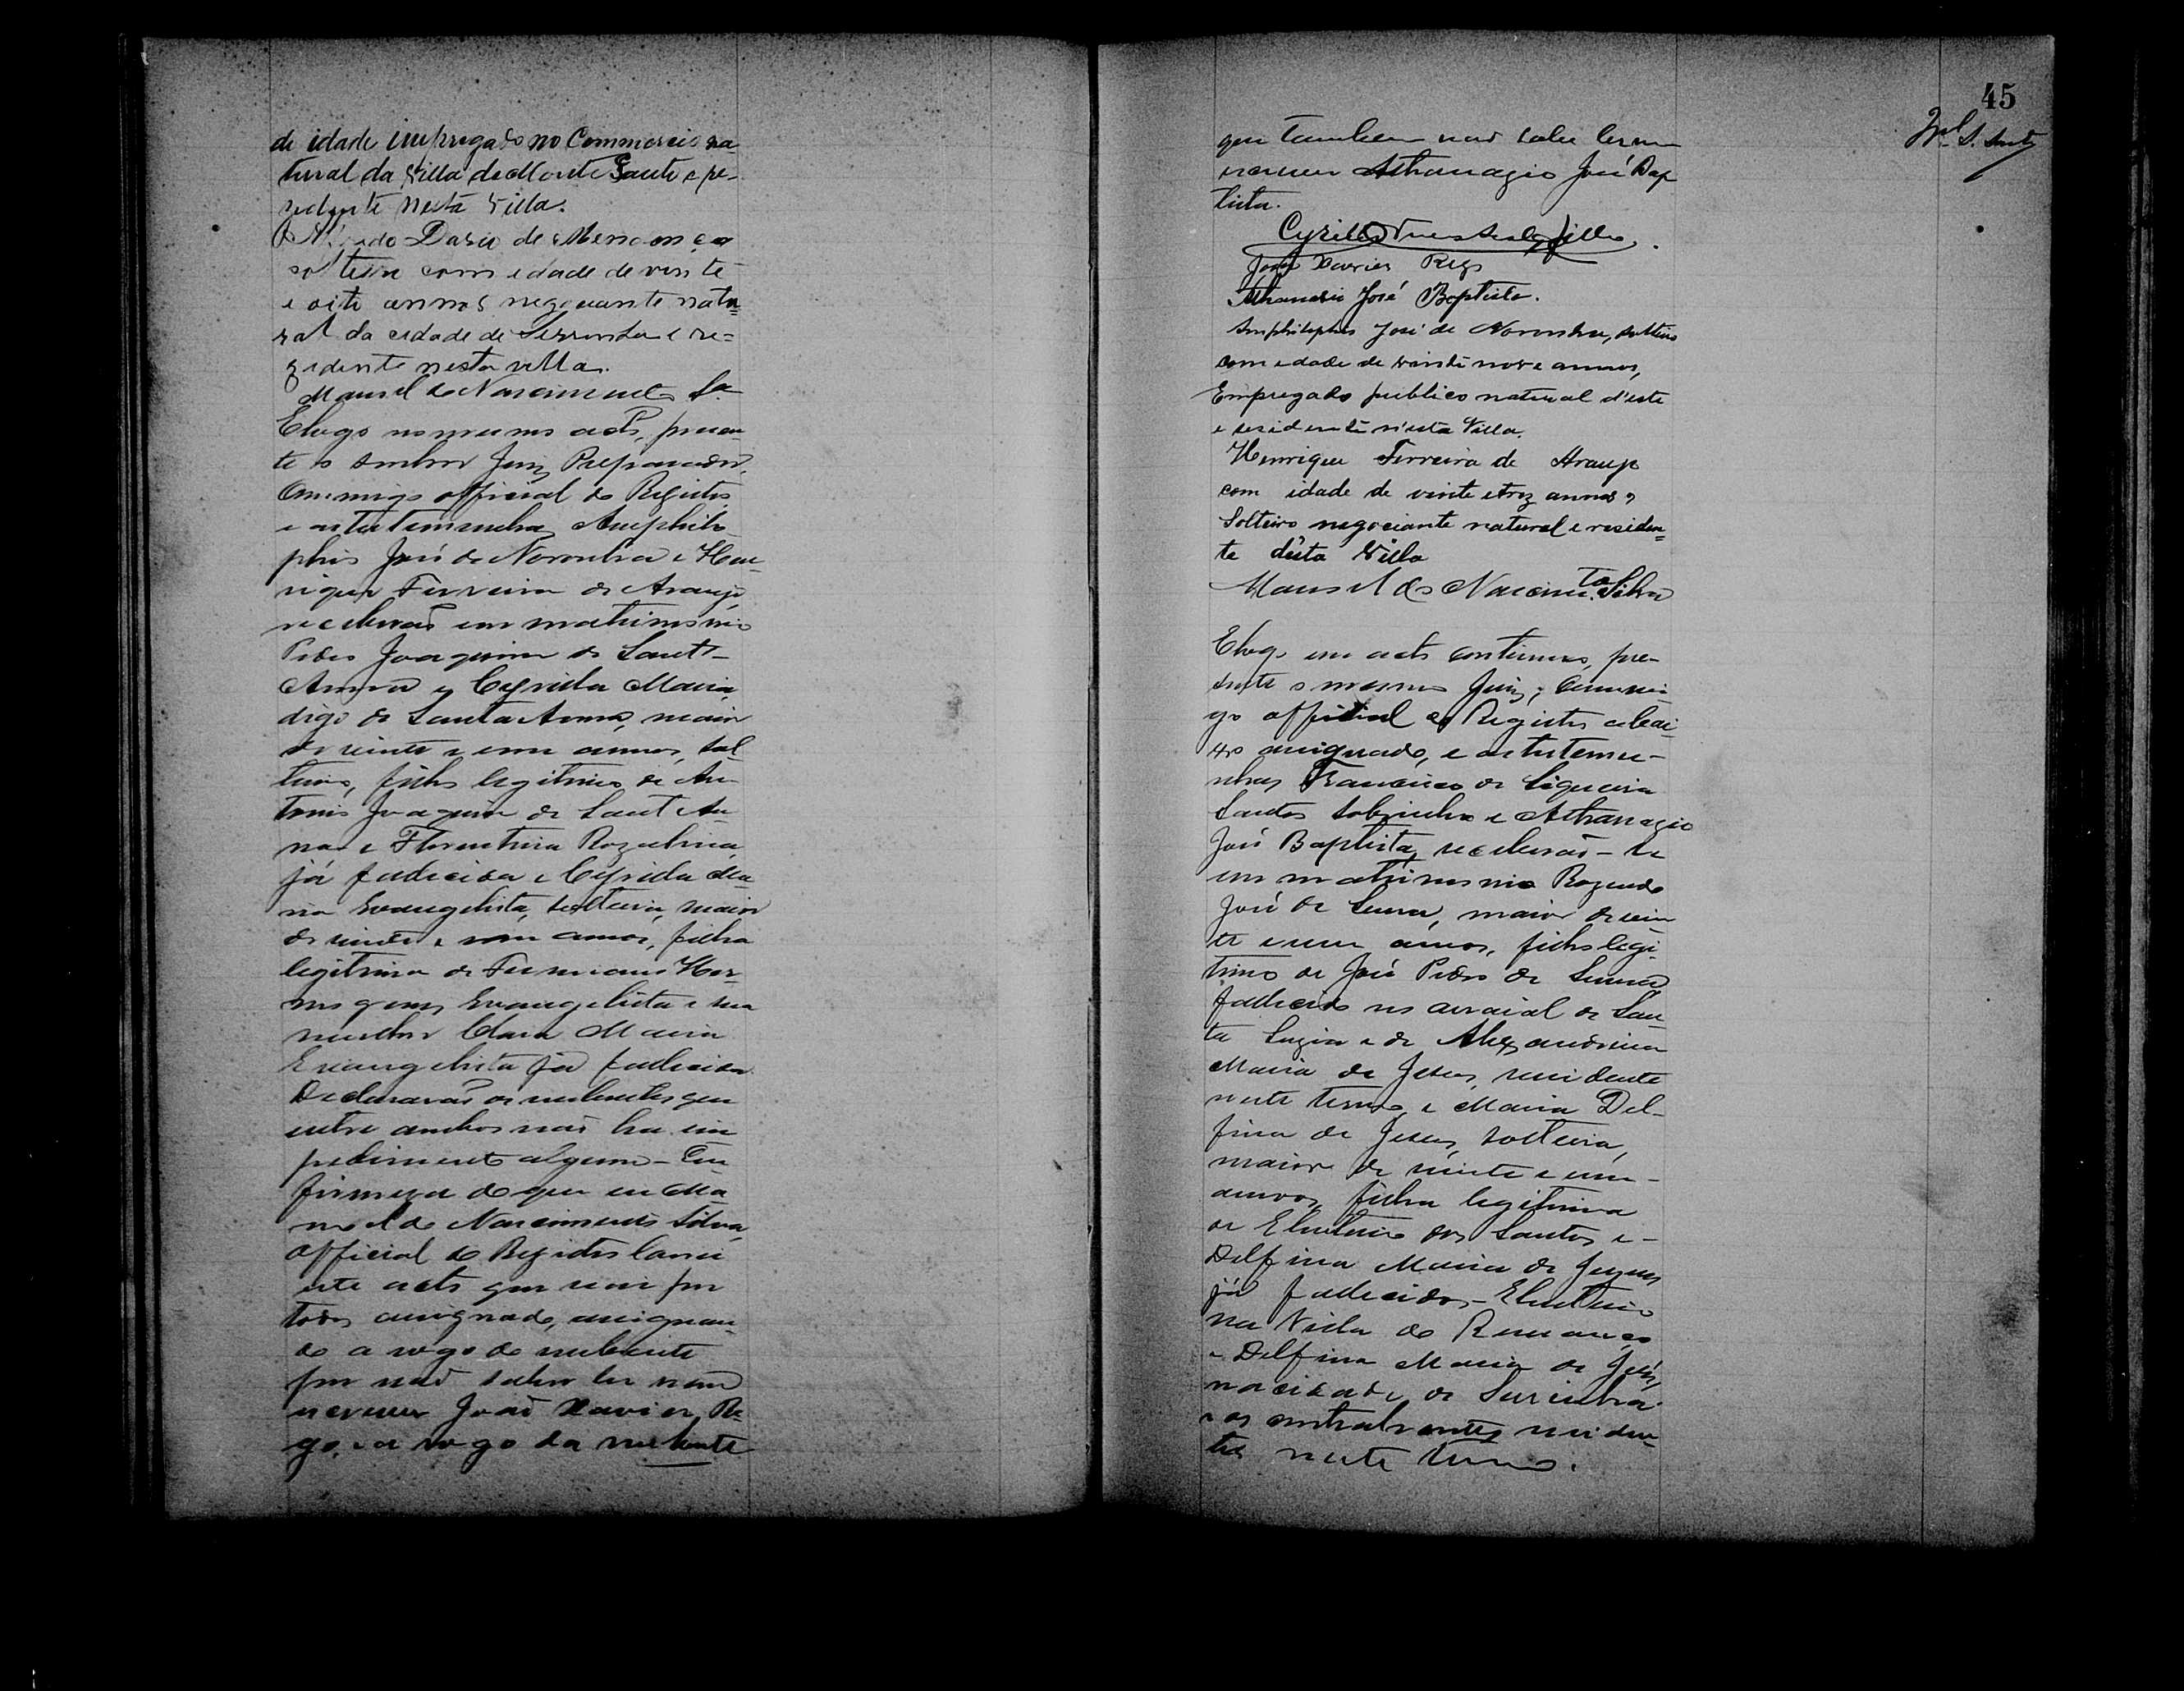 de idade empregado no Commercio na-
tural da Villa de Monte Santo e re-
zidente nesta Villa.
Dario de Mendonça
solteiro com edade de vinte
e oito annos negociante natu-
ral da cidade de Serrinha e re-
zidente nesta villa.
Manoel do Nascimento Sa
E logo no mesmo acto, presen-
te o senhor Juiz Preparador,
Commigo official do Registro
e as testemunhas Amphilo-
phio José de Noronha e Hen-
rique Ferreira de Araujo,
receberão em matrimonio
Pedro Joaquim de Sant-
Anna e Cyrilla Maria,
digo de Santa Anna, maior
de vinte e um annos, sol-
teiro, filho legitimo de An-
tonio Joaquim de Sant An-
na e Florentina Rozalina,
já fallecida e Cyrilla Ma-
ria Evangelista, solteira, maior
de vinte e um annos, filha
legitima de Firmiano Her-
mogenes Evangelista e sua
mulher Clara Maria
Evangelista já fallecida.
Declararão os nubentes que
entre ambos não ha im-
pedimento algum - Em
firmeza do que eu Ma-
noel do Nascimento Silva,
official do Registro lavrei
este acto que vai por
todos assignado, assignan-
do a rogo do nubente
por não saber ler nem
escrever João Xavier Re-
go, e a rogo da nubente
45
que tambem não sabe ler nem
escrever Athanazio José Bap
tista.
Cyrillo
João Xavier Rego
Athanasio José Baptista.
Amphilophio José de Noronha, solteiro
com edade de vinte nove annos,
Empregado publico natural d'esta
e residente n'esta Villa.
Henrique Ferreira de Araujo
com idade de vinte e trez annos,
Solteiro negociante natural e residen-
te desta Villa
Manoel do Nascimto Silva
E logo em acto continuo, pre-
sente o mesmo Juiz, Commi-
go official do Registro abai-
xo assignado, e as testemu-
nhas Francisco de Siqueira
Santos Sobrinho e Athanazio
José Baptista, receberão-se
em matrimonio Rozendo
José de Senna, maior de vin-
te e um annos, filho legi-
timo de José Pedro de Senna,
fallecido no arraial de San-
ta Luzia e de Alexandrina
Maria de Jesus, residente
neste termo, e Maria Del-
fina de Jesus, solteira,
maior de vinte e um-
annos, filha legitima
de Eleuterio dos Santos e-
Delfina Maria de Jesus
já fallecidos - Eleuterio
na Villa do Remanso
e Delfina Maria de Jesus,
na cidade de Serrinha
e os contrahentes residen-
tes neste termo.